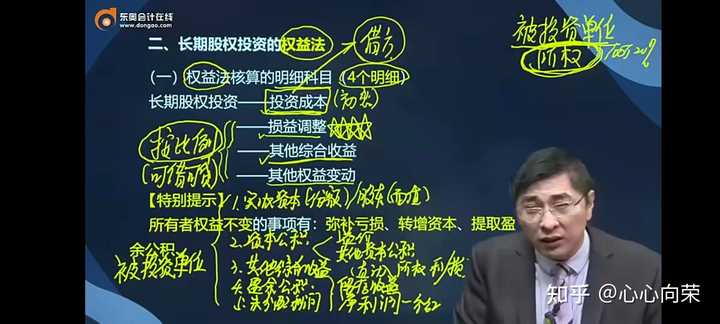 东奥会计在线
www.dongao.com
二、长期股权投资的权益法
借方
被投资单位
所有权
（一）权益法核算的明细科目（4个明细）
长期股权投资——投资成本（初始）
——损益调整
按比例
（可借可贷）
——其他综合收益
——其他权益变动
【特别提示】1.实收资本
所有者权益不变的事项有：弥补亏损、转增资本、提取盈
余公积
被投资单位
2.资本公积
其他资本公积
3.其他综合收益
4.盈余公积
5.未分配利润
知乎 @心心向荣